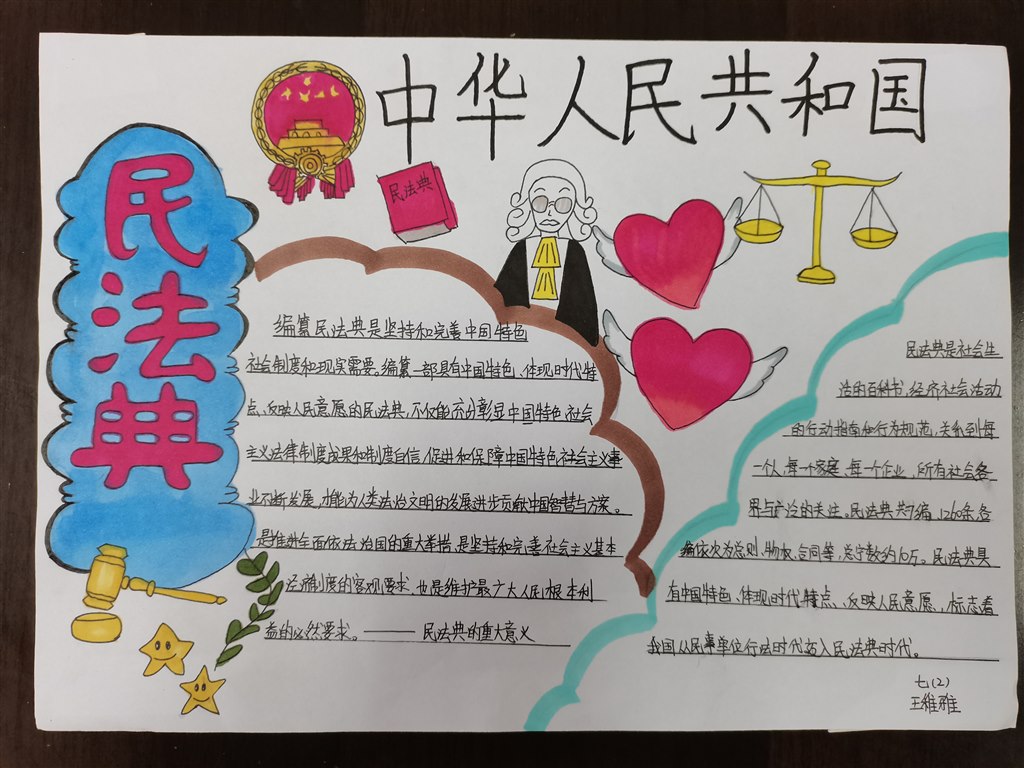 中华人民共和国
民法典
民法典
编纂民法典是坚持和完善中国特色
社会制度和现实需要,编纂一部具有中国特色、体现时代特
点、反映人民意愿的民法典,不仅能充分彰显中国特色社会
主义法律制度成果和制度自信,促进和保障中国特色社会主义事
业不断发展,也能为人类法治文明的发展进步贡献中国智慧与方案。
是推进全面依法治国的重大举措,是坚持和完善社会主义基本
法制度的客观要求,也是维护最广大人民根本利
益的必然要求。——民法典的重大意义
民法典是社会生
活的百科书,经济社会活动
的行动指南和行为规范,关系到每
一个人、每一个家庭、每一个企业,所有社会各
界与广泛的关注。民法典共7编,1260条,各
编依次为总则、物权、合同等,总字数约10万。民法典具
有中国特色、体现时代特点、反映人民意愿,标志着
我国从民事单位行法时代迈入民法典时代。
七(2)
王雅